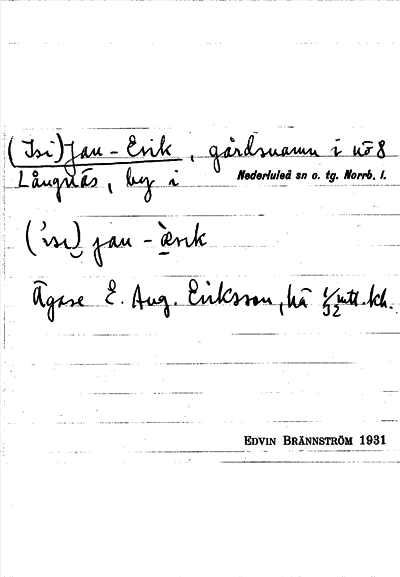 (Isi)Jan-Erik, gårdsnamn i nö 8
Långnäs, by i Nederluleå sn o. tg. Norrb. l.
('ısı) jan - æ̀rık
Ägare E. Aug. Eriksson, hå 1/32 mtl. kh.
EDVIN BRÄNNSTRÖM 1931